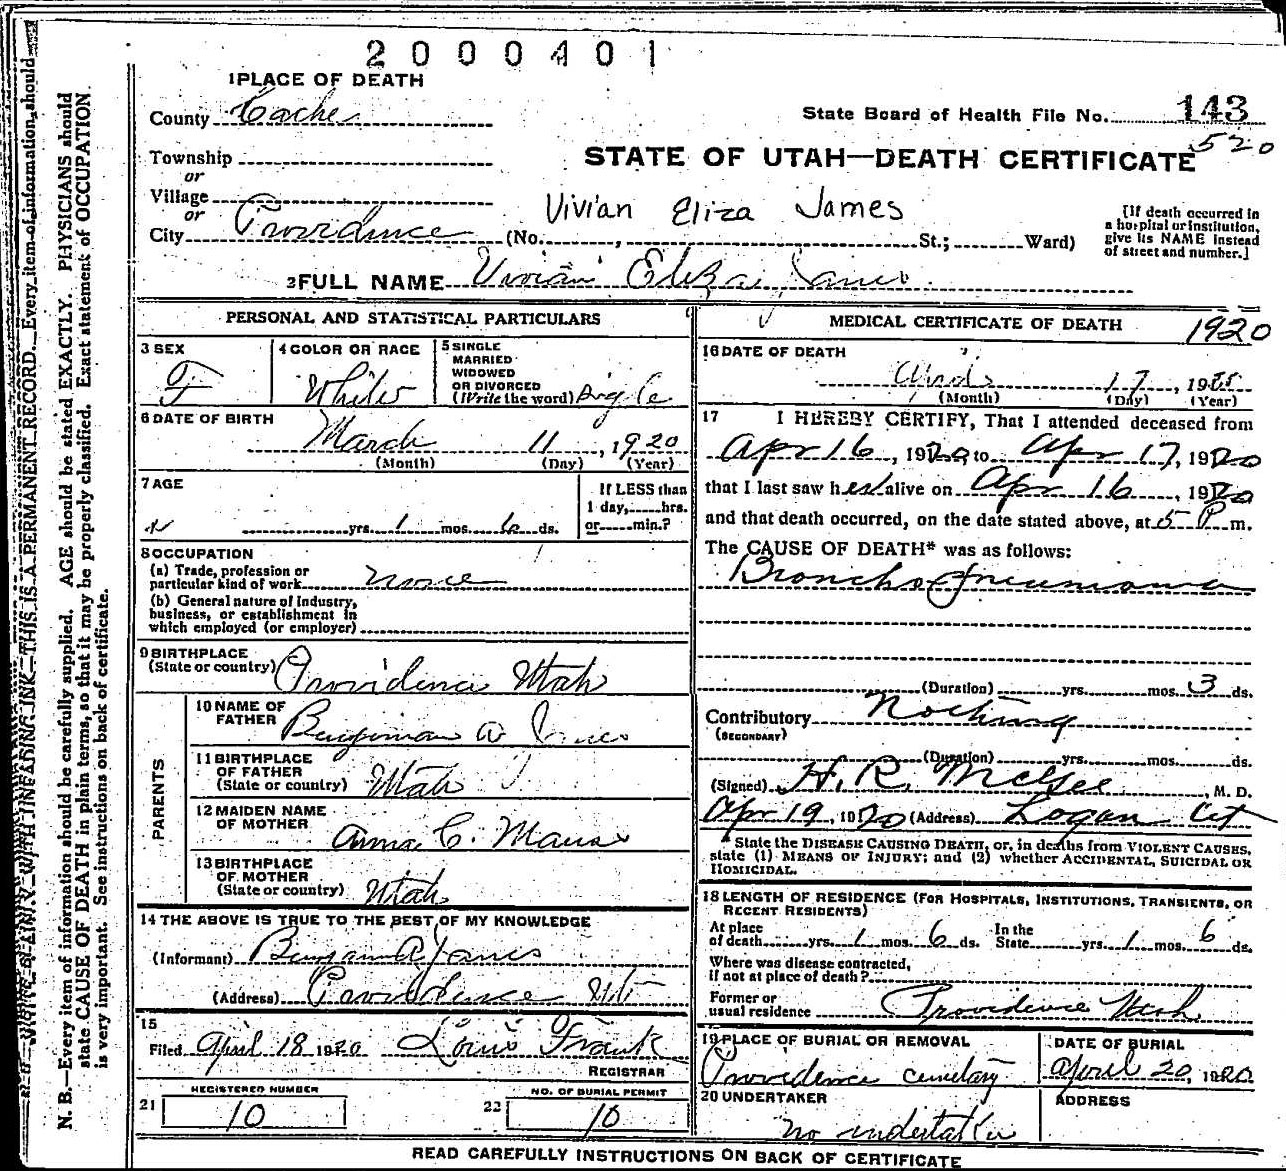 2 0 0 0 4 0 1
1 PLACE OF DEATH
County Cache
State Board of Health File No. 143
520
STATE OF UTAH—DEATH CERTIFICATE
Township
or
Village
or
Vivian Eliza James
City Providence (No. , St.; Ward)
[If death occurred in
a hospital or institution,
give its NAME instead
of street and number.]
2 FULL NAME Vivian Eliza James
PERSONAL AND STATISTICAL PARTICULARS
3 SEX
F
4 COLOR OR RACE
White
5 SINGLE
MARRIED
WIDOWED
OR DIVORCED
(Write the word) Single
6 DATE OF BIRTH
March 11, 1920
(Month) (Day) (Year)
7 AGE
yrs. 1 mos. 6 ds.
If LESS than
1 day, hrs.
or min.?
8 OCCUPATION
(a) Trade, profession or
particular kind of work none
(b) General nature of industry,
business, or establishment in
which employed (or employer)
9 BIRTHPLACE
(State or country) Providence Utah
PARENTS
10 NAME OF
FATHER Benjiman A James
11 BIRTHPLACE
OF FATHER
(State or country) Utah
12 MAIDEN NAME
OF MOTHER Anna C.
13 BIRTHPLACE
OF MOTHER
(State or country) Utah
14 THE ABOVE IS TRUE TO THE BEST OF MY KNOWLEDGE
(Informant) Benjamin A James
(Address) Providence Ut
15
Filed April 18 1920 Louis Frank
REGISTRAR
REGISTERED NUMBER
21 10
NO. OF BURIAL PERMIT
22 10
MEDICAL CERTIFICATE OF DEATH
1920
16 DATE OF DEATH
April 17, 19
(Month) (Day) (Year)
17 I HEREBY CERTIFY, That I attended deceased from
Apr 16, 1920, to Apr 17, 1920
that I last saw her alive on Apr 16, 1920
and that death occurred, on the date stated above, at 5 P m.
The CAUSE OF DEATH* was as follows:
Broncho Pneumonia
(Duration) yrs. mos. 3 ds.
Contributory Nothing
(SECONDARY)
(Duration) yrs. mos. ds.
(Signed) H. R. McGee, M. D.
Apr 19, 1920 (Address) Logan
* State the DISEASE CAUSING DEATH, or, in deaths from VIOLENT CAUSES,
state (1) MEANS OF INJURY; and (2) whether ACCIDENTAL, SUICIDAL OR
HOMICIDAL.
18 LENGTH OF RESIDENCE (FOR HOSPITALS, INSTITUTIONS, TRANSIENTS, OR
RECENT RESIDENTS)
At place
of death yrs. 1 mos. 6 ds. In the
State yrs. 1 mos. 6 ds.
Where was disease contracted,
if not at place of death?
Former or
usual residence Providence Utah
19 PLACE OF BURIAL OR REMOVAL
Providence cemetary
DATE OF BURIAL
April 20, 1920
20 UNDERTAKER
no undertaker
ADDRESS
READ CAREFULLY INSTRUCTIONS ON BACK OF CERTIFICATE
WRITE PLAINLY WITH UNFADING INK—THIS IS A PERMANENT RECORD. Every item of information should
N. B.—Every item of information should be carefully supplied. AGE should be stated EXACTLY. PHYSICIANS should
state CAUSE OF DEATH in plain terms, so that it may be properly classified. Exact statement of OCCUPATION
is very important. See instructions on back of certificate.